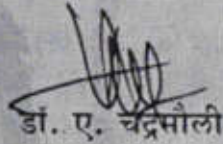 डॉ. ए. चंद्रमौली